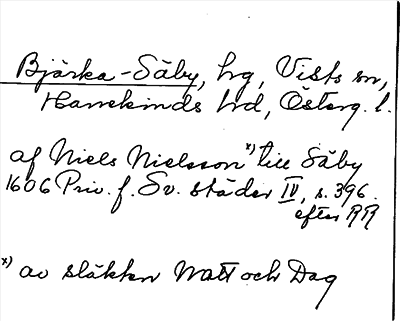 Bjärka-Säby, hg, Vists sn,
Hanekinds hd, Österg. l.
af Niels Nielsson x) till Säby
1606 Priv. f. Sv. städer IV, s. 396.
efter RR
x) av släkten Natt och Dag